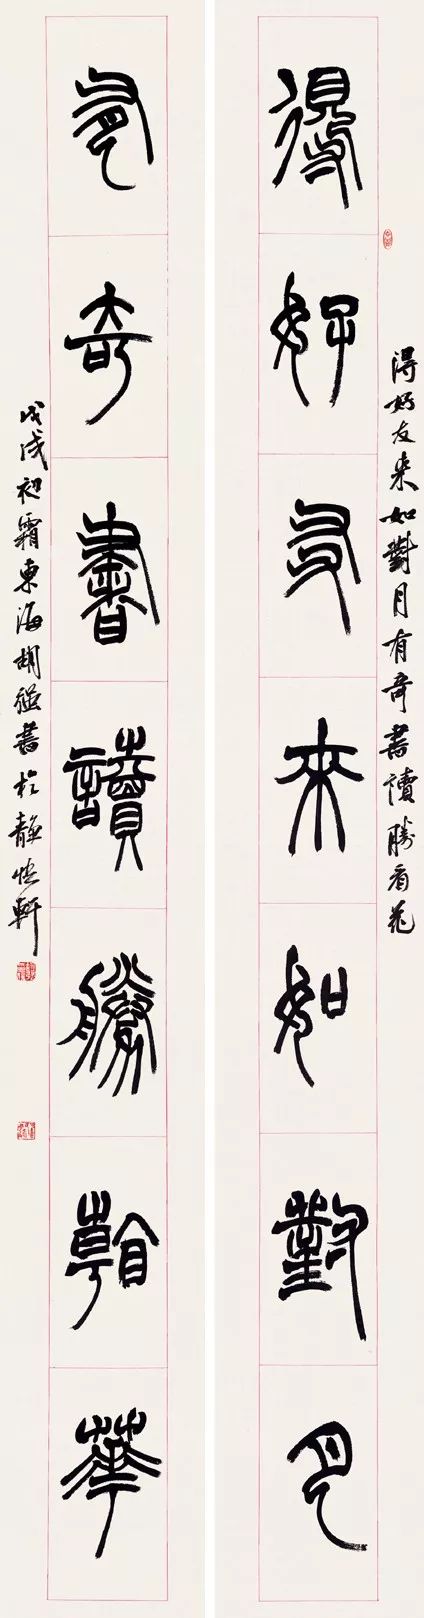 得好友来如對月
得好友来如對月有奇書讀勝看花
有奇書讀勝看華
戊戌初霜東海胡
書於靜
軒